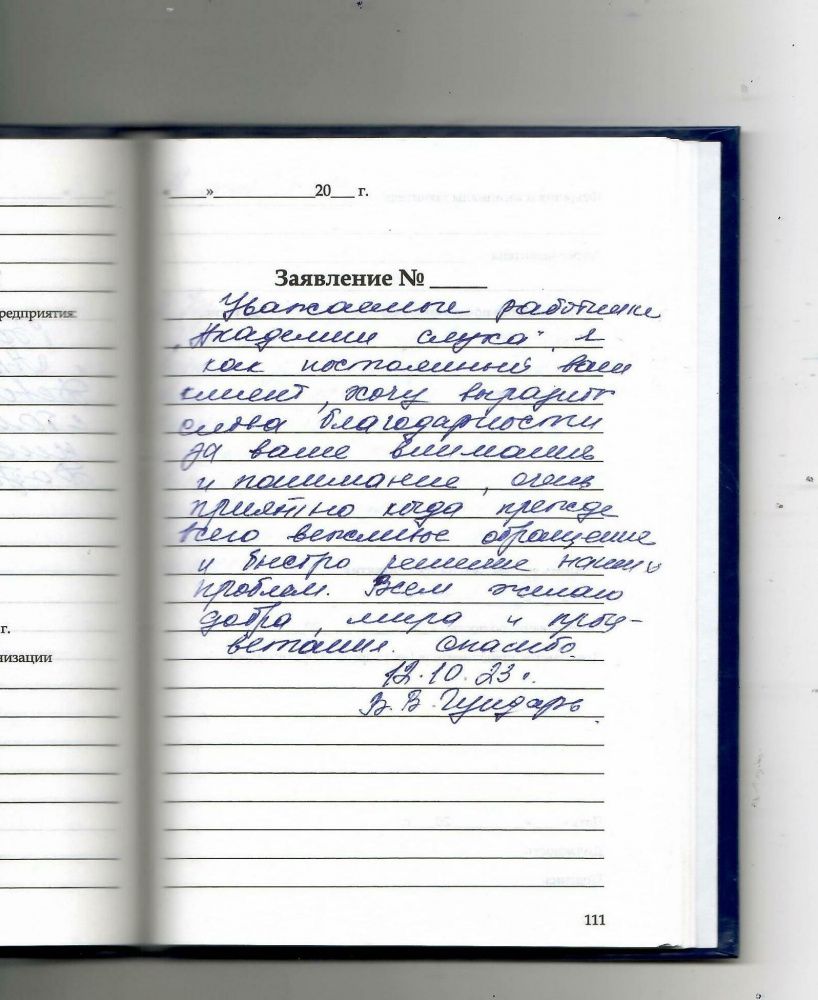 «____»____________20___ г.
Заявление № _____
Уважаемые работники
„Академии слуха“, я
как постоянный ваш
клиент, хочу выразить
слова благодарности
за ваше внимание
и понимание, очень
приятно когда прежде
всего вежливое обращение
и быстро решение наших
проблем. Всем желаю
добра, мира и проц-
ветания. Спасибо.
12.10.23г.
В.В. Гундарь
111
редприятия:
г.
низации